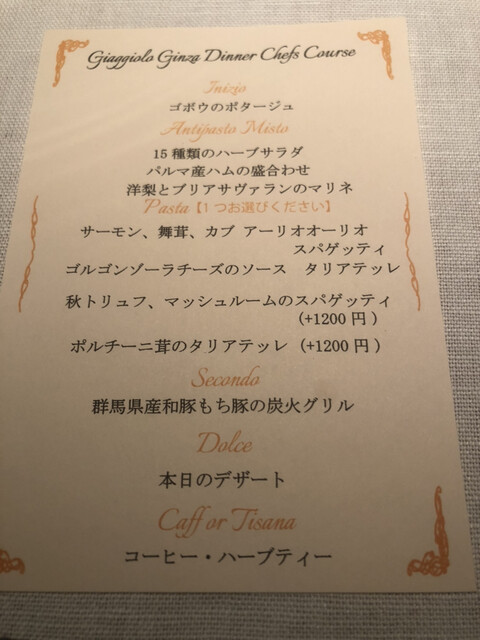 Giaggiolo Ginza Dinner Chefs Course
Inizio
ゴボウのポタージュ
Antipasto Misto
15種類のハーブサラダ
パルマ産ハムの盛合わせ
洋梨とブリアサヴァランのマリネ
Pasta【1つお選びください】
サーモン、舞茸、カブ アーリオオーリオ
スパゲッティ
ゴルゴンゾーラチーズのソース タリアテッレ
秋トリュフ、マッシュルームのスパゲッティ
(+1200円)
ポルチーニ茸のタリアテッレ (+1200円)
Secondo
群馬県産和豚もち豚の炭火グリル
Dolce
本日のデザート
Caff or Tisana
コーヒー・ハーブティー